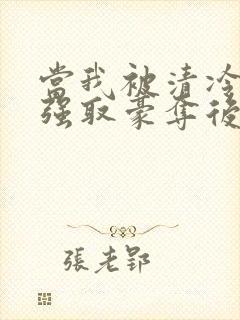 當我被清冷
強取豪奪後
張老郢